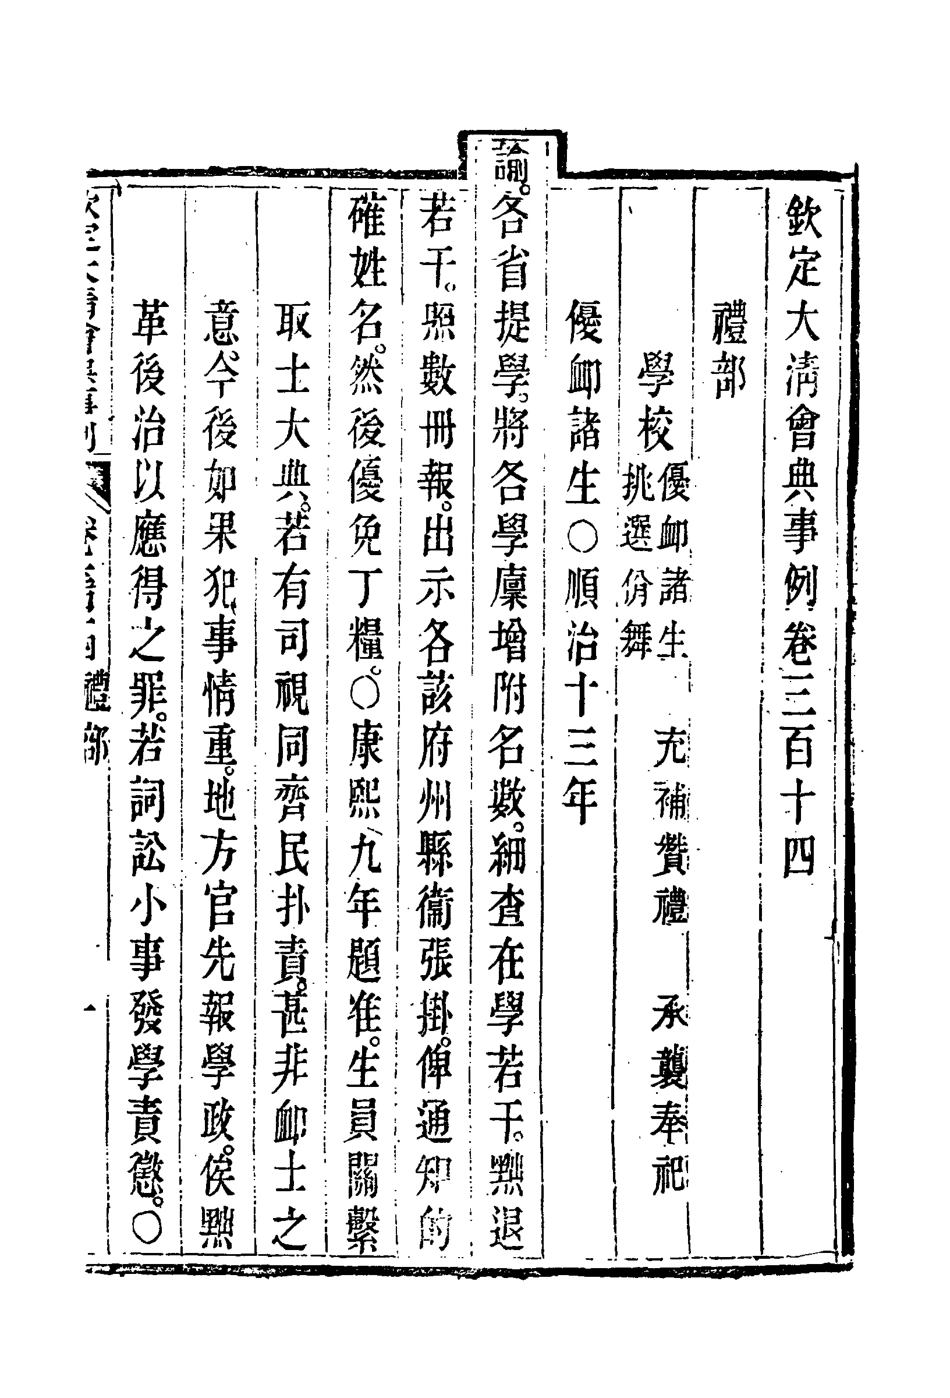 欽定大清會典事例卷三百十四
禮部
學校優卹諸生 充補贊禮 承襲奉祀
挑選佾舞
優卹諸生○順治十三年
諭。各省提學。將各學廩增附名數。細查在學若干。黜退
若干。照數冊報。出示各該府州縣衞張掛。俾通知的
確姓名。然後優免丁糧。○康熙九年題准。生員關繫
取士大典。若有司視同齊民扑責。甚非卹士之
意。今後如果犯事情重。地方官先報學政。俟黜
革後治以應得之罪。若詞訟小事發學責懲。○
欽定大清會典事例 卷三百十四 禮部 一